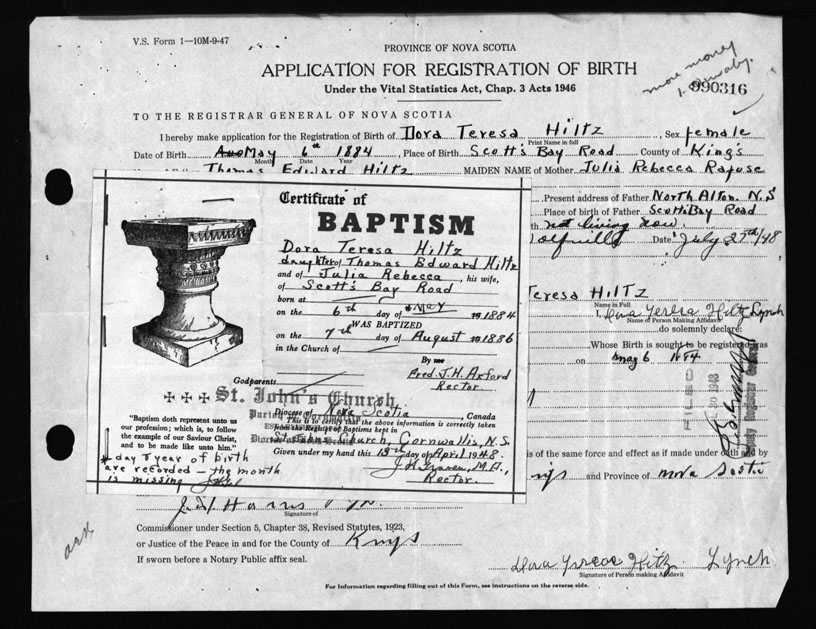 V.S. Form 1—10M-9-47
PROVINCE OF NOVA SCOTIA
APPLICATION FOR REGISTRATION OF BIRTH
Under the Vital Statistics Act, Chap. 3 Acts 1946
more money
990316
TO THE REGISTRAR GENERAL OF NOVA SCOTIA
I hereby make application for the Registration of Birth of Dora Teresa Hiltz, Sex female
Print Name in full
Date of Birth May 6th 1884, Place of Birth Scott's Bay Road County of King's
Month Date Year
Thomas Edward Hiltz MAIDEN NAME of Mother Julia Rebecca Rafuse
Present address of Father North Alton. N.S
Place of birth of Father Scotts Bay Road
not living now.
Date July 27th/48
Certificate of
BAPTISM
Dora Teresa Hiltz
daughter of Thomas Edward Hiltz
and of Julia Rebecca, his wife,
of Scott's Bay Road
born at
on the 6th day of May 1884
WAS BAPTIZED
on the 7th day of August 1886
in the Church of
By
Fred. J.H. Axford
Rector.
Godparents
St. John's Church
Diocese of Nova Scotia, Canada
This is to certify that the above information is correctly taken
from the Register of Baptisms kept in
St. Johns Church, Cornwallis, N.S.
Given under my hand this 13th day of April 1948.
M.A.,
Rector.
"Baptism doth represent unto us
our profession; which is, to follow
the example of our Saviour Christ,
and to be made like unto him."
day & year of birth
are recorded — the month
is missing
Teresa Hiltz
Name in Full
I, Dora Teresa Hiltz Lynch
Name of Person Making Affidavit
do solemnly declare:
Whose Birth is sought to be registered was
on May 6 1884
FILED
is of the same force and effect as if made under oath and by
and Province of Nova Scotia
Signature of
Commissioner under Section 5, Chapter 38, Revised Statutes, 1923,
or Justice of the Peace in and for the County of Kings
If sworn before a Notary Public affix seal.
Dora Teresa Hiltz Lynch
Signature of Person making Affidavit
For Information regarding filling out of this Form, see instructions on the reverse side.